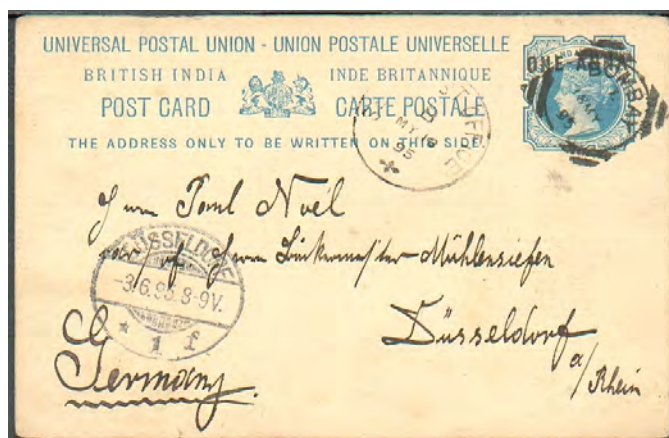 UNIVERSAL POSTAL UNION - UNION POSTALE UNIVERSELLE
BRITISH INDIA INDE BRITANNIQUE
POST CARD CARTE POSTALE
THE ADDRESS ONLY TO BE WRITTEN ON THIS SIDE.
ONE ANNA
BOMBAY
95
OFFICE
MY 18
95
Herrn Paul Noël
Herrn Bäckermeister Mühlensiefen
Düsseldorf
a/Rhein
Germany.
DÜSSELDORF
-3.6.95.8-9V.
* 1 f